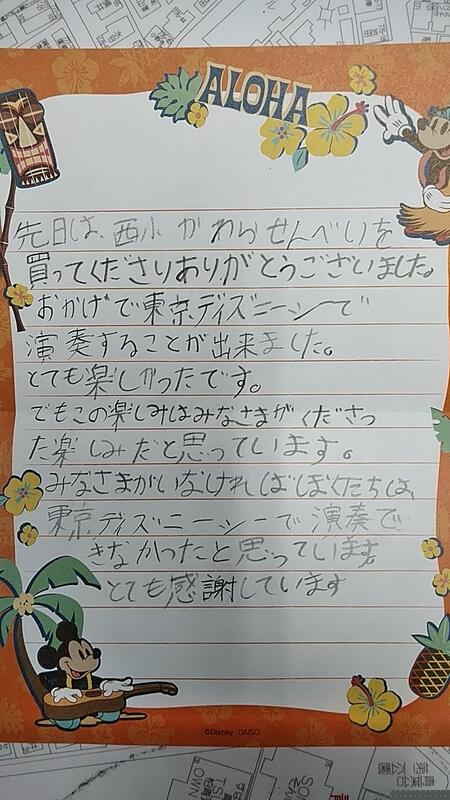 ALOHA
先日は、西小かわらせんべいを
買ってくださりありがとうございました。
おかげで東京ディズニーシーで
演奏することが出来ました。
とても楽しかったです。
でもこの楽しみはみなさまがくださっ
た楽しみだと思っています。
みなさまがいなければぼくたちは、
東京ディズニーシーで演奏で
きなかったと思っています。
とても感謝しています
©Disney DAISO